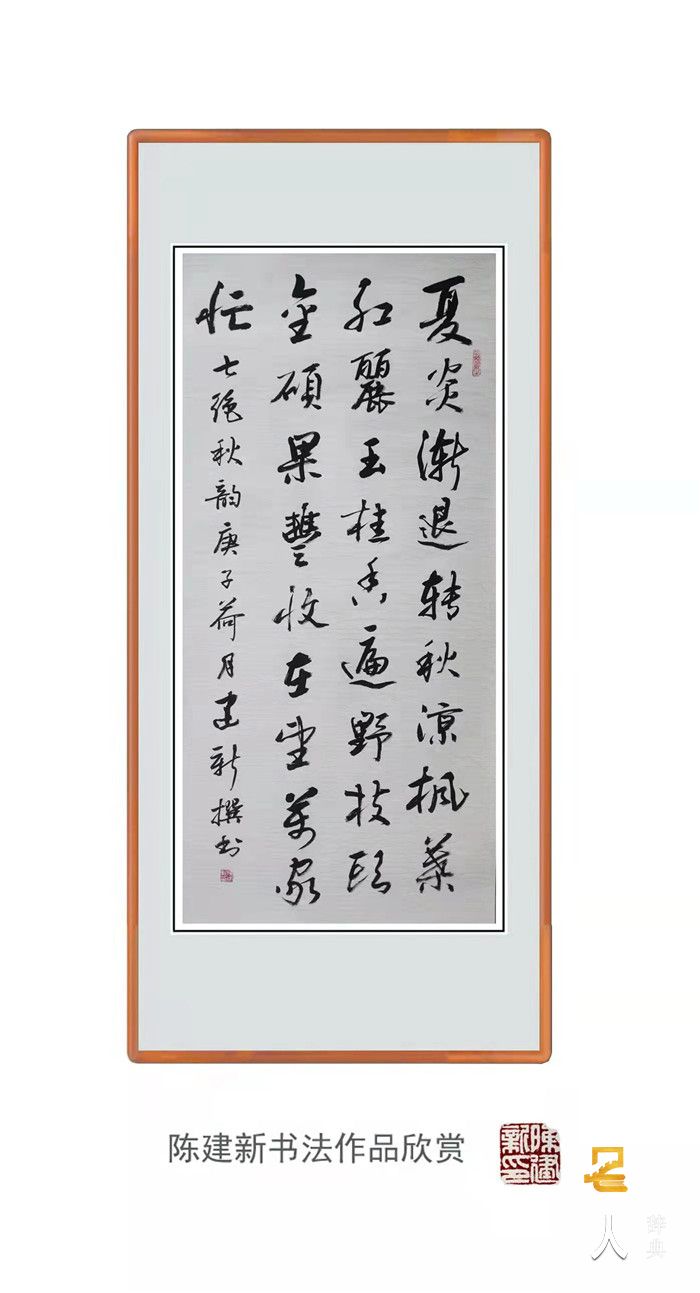 夏炎渐退转秋凉枫葉
红麗玉桂香遍野枝頭
金碩果豐收在望萬家
忙
七绝秋韵庚子荷月建新撰书
陈建新书法作品欣赏
陳建新印
名人
辞典